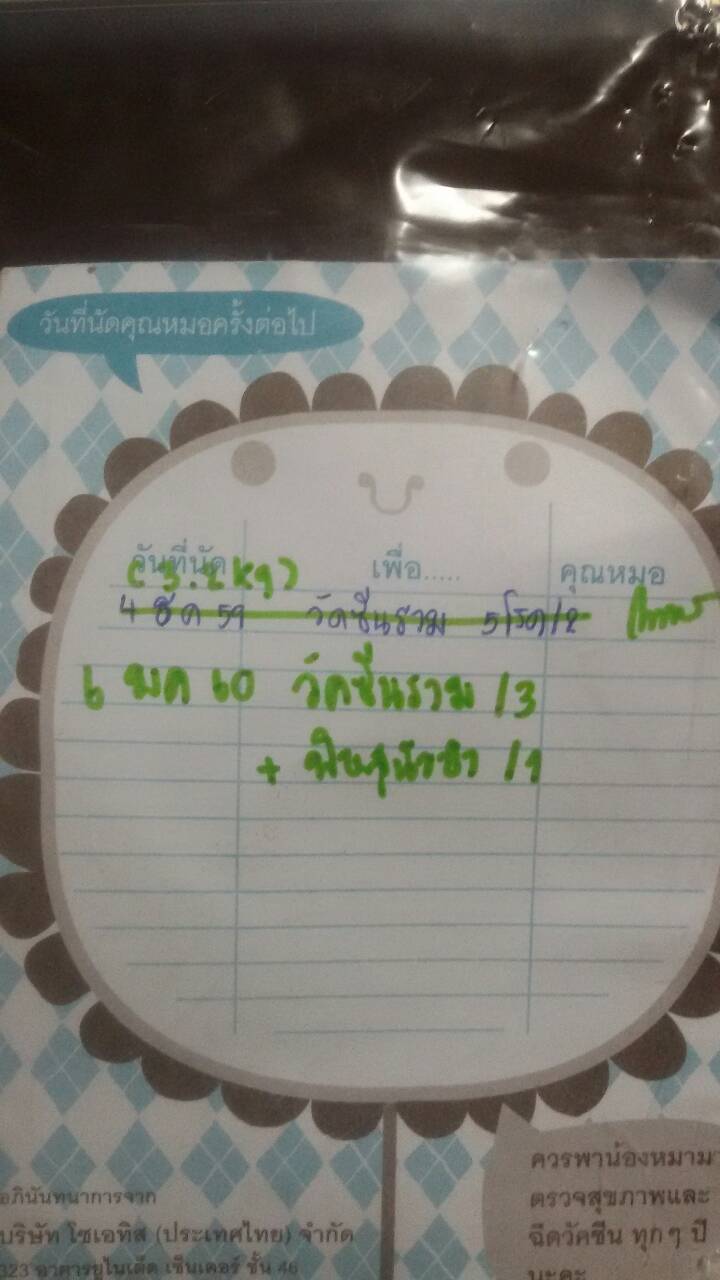 วันที่นัดคุณหมอครั้งต่อไป
วันที่นัด เพื่อ..... คุณหมอ
(3.2 kg)
4 ธค 59 วัคซีนรวม 5โรค/2
6 มค 60 วัคซีนรวม /3
+ พิษสุนัขบ้า /1
ควรพาน้องหมามา
ตรวจสุขภาพและ
ฉีดวัคซีน ทุกๆ ปี
นะคะ
อภินันทนาการจาก
บริษัท โซเอทิส (ประเทศไทย) จำกัด
323 อาคารยูไนเต็ด เซ็นเตอร์ ชั้น 46